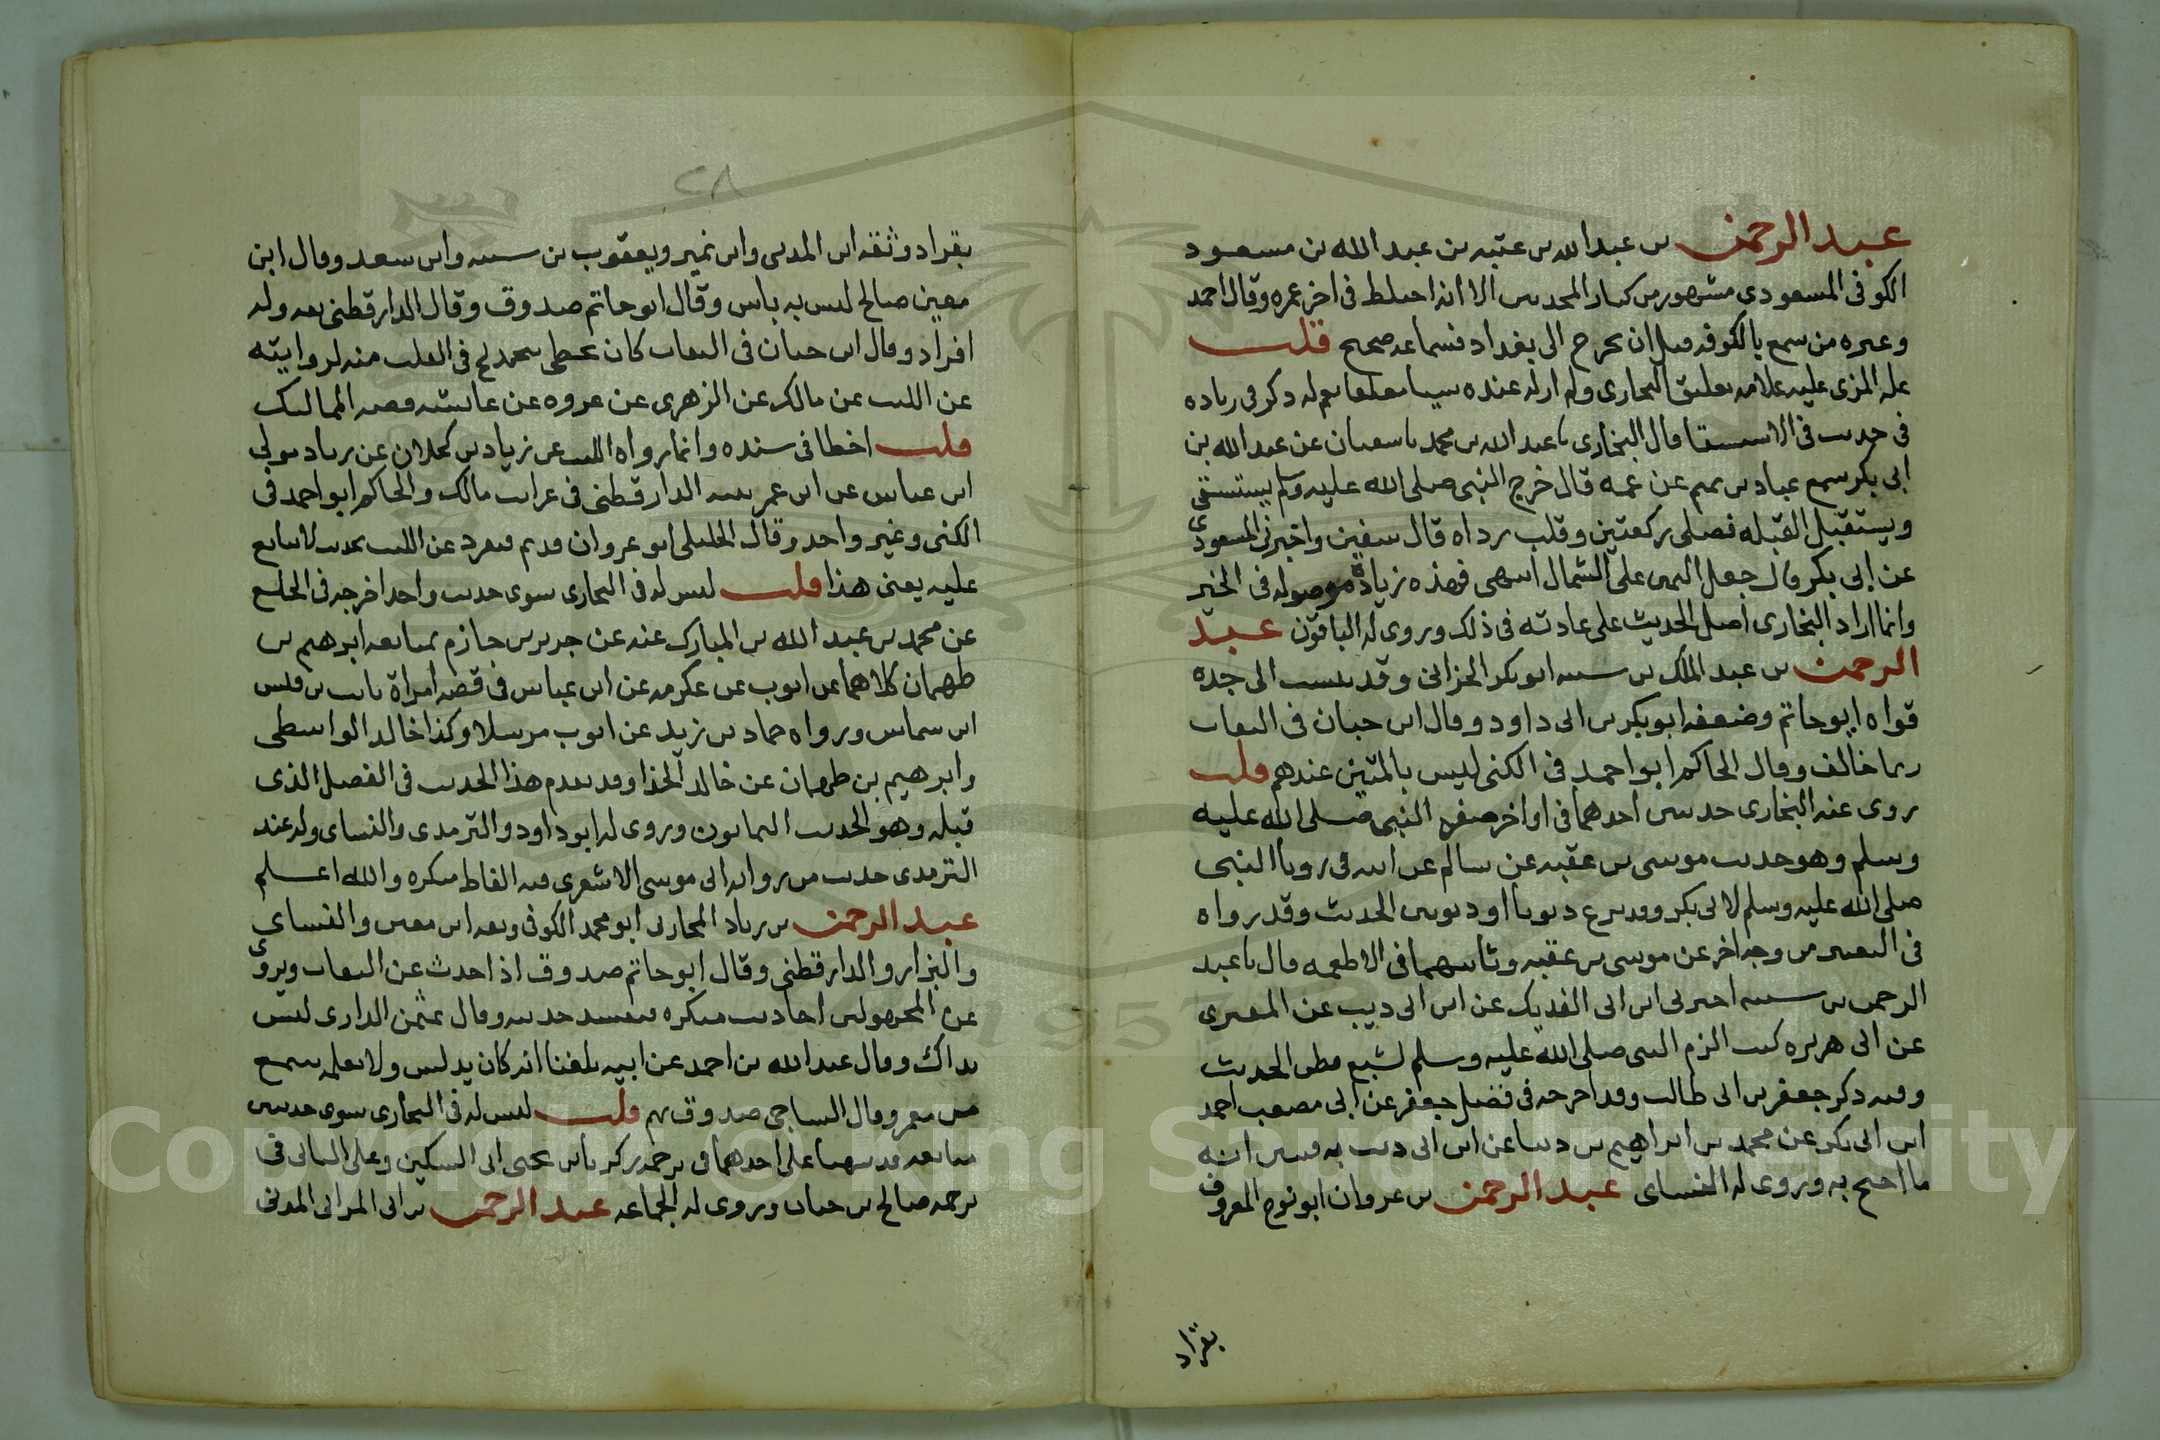 عبد الرحمن بن عبد الله بن عتبه بن عبد الله بن مسعود
الكوفى المسعودى مشهور من كبار المحدثين الا انه اختلط فى اخر عمره وقال احمد
وغيره من سمع بالكوفه قبل ان يخرج الى بغداد فسماعه صحيح قلت
علم المزى عليه علامه تعليق البخارى ولم ار له عنده شيا معلقا نعم له ذكر فى زياده
فى حديث فى الاستسقا قال البخارى نا عبد الله بن محمد نا سفيان عن عبد الله بن
ابى بكر سمع عباد بن تميم عن عمه قال خرج النبى صلى الله عليه وسلم يستسقى
ويستقبل القبله فصلى ركعتين وقلب رداه قال سفين واخبرنى المسعودى
عن ابى بكر قال جعل اليمين على الشمال انتهى فهذه زيادة موصوله فى الخبر
وانما اراد البخارى اصل الحديث على عادته فى ذلك وروى له الباقون عبد
الرحمن بن عبد الملك بن شيبه ابو بكر الحزانى وقد ينسب الى جده
قواه ابو حاتم وضعفه ابو بكر بن ابى داود وقال ابن حبان فى الثقات
ربما خالف وقال الحاكم ابو احمد فى الكنى ليس بالمتين عندهم قلت
روى عنه البخارى حديثين احدهما فى اواخر صفه النبى صلى الله عليه
وسلم وهو حديث موسى بن عقبه عن سالم عن ابيه فى رويا النبى
صلى الله عليه وسلم لابى بكر وقد نزع ذنوبا او ذنوبين الحديث وقد رواه
فى التعبير من وجه اخر عن موسى بن عقبه وثانيهما فى الاطعمه قال نا عبد
الرحمن بن شيبه اخبرنى ابن ابى الفديك عن ابن ابى ذيب عن المقبرى
عن ابى هريره كنت الزم النبى صلى الله عليه وسلم لشبع بطنى الحديث
وفيه ذكر جعفر بن ابى طالب وقد اخرجه فى فضل جعفر عن ابى مصعب احمد
ابن ابى بكر عن محمد بن ابراهيم بن دينا عن ابن ابى ذيب به فتبين انه
ما احتج به وروى له النساى عبد الرحمن بن غزوان ابو نوح المعروف
بقراد
٢٨
بقراد وثقه ابن المدينى وابن نمير ويعقوب بن شيبه وابن سعد وقال ابن
معين صالح ليس به باس وقال ابو حاتم صدوق وقال الدارقطنى ثقه وله
افراد وقال ابن حبان فى الثقات كان يخطى يتخالج فى القلب منه لروايته
عن الليث عن مالك عن الزهرى عن عروه عن عايشه قصه المماليك
قلت اخطا فى سنده وانما رواه الليث عن زياد بن عجلان عن زياد مولى
ابن عياش عن ابن عمر بينه الدارقطنى فى غرايب مالك والحاكم ابو احمد فى
الكنى وغير واحد وقال الخليلى ابو غزوان قديم ينفرد عن الليث بحديث لا يتابع
عليه يعنى هذا قلت ليس له فى البخارى سوى حديث واحد اخرجه فى الخلع
عن محمد بن عبد الله بن المبارك عنه عن جرير بن حازم بمتابعه ابرهيم بن
طهمان كلاهما عن ايوب عن عكرمه عن ابن عباس فى قصه امراة ثابت بن قيس
ابن شماس ورواه حماد بن زيد عن ايوب مرسلا وكذا خالد الواسطى
وابرهيم بن طهمان عن خالد الحذا وقد تقدم هذا الحديث فى الفصل الذى
قبله وهو الحديث الثمانون وروى له ابو داود والترمذى والنساى وله عند
الترمذى حديث من روايه ابى موسى الاشعرى فيه الفاظ منكره والله اعلم
عبد الرحمن بن زياد المحاربى ابو محمد الكوفى وثقه ابن معين والنساى
والبزار والدارقطنى وقال ابو حاتم صدوق اذا حدث عن الثقات ويروى
عن المجهولين احاديث منكره فيفسد حديثه وقال عثمن الدارى ليس
بذاك وقال عبد الله بن احمد عن ابيه بلغنا انه كان يدلس ولا نعلمه سمع
من معمر وقال الساجى صدوق يهم قلت ليس له فى البخارى سوى حديثين
متابعه قد نبهنا على احدهما فى ترجمه زكريا بن يحيى ابى السكين وعلى الثانى فى
ترجمه صالح بن حيان وروى له الجماعه عبد الرحمن بن ابى الموالى المدنى